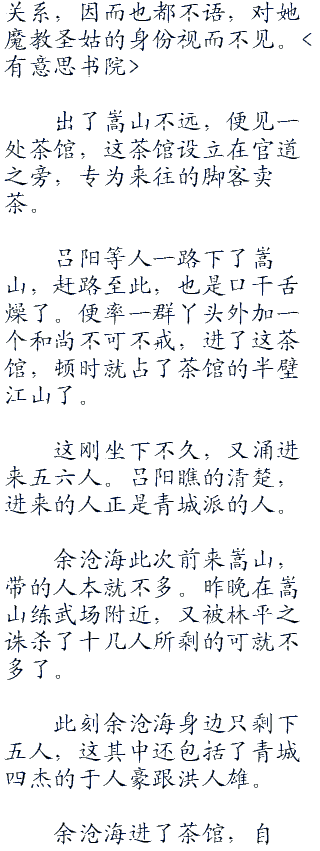 关系，因而也都不语，对她
魔教圣姑的身份视而不见。<
有意思书院>
出了嵩山不远，便见一
处茶馆，这茶馆设立在官道
之旁，专为来往的脚客卖
茶。
吕阳等人一路下了嵩
山，赶路至此，也是口干舌
燥了。便率一群丫头外加一
个和尚不可不戒，进了这茶
馆，顿时就占了茶馆的半壁
江山了。
这刚坐下不久，又涌进
来五六人。吕阳瞧的清楚，
进来的人正是青城派的人。
余沧海此次前来嵩山，
带的人本就不多。昨晚在嵩
山练武场附近，又被林平之
诛杀了十几人所剩的可就不
多了。
此刻余沧海身边只剩下
五人，这其中还包括了青城
四杰的于人豪跟洪人雄。
余沧海进了茶馆，自